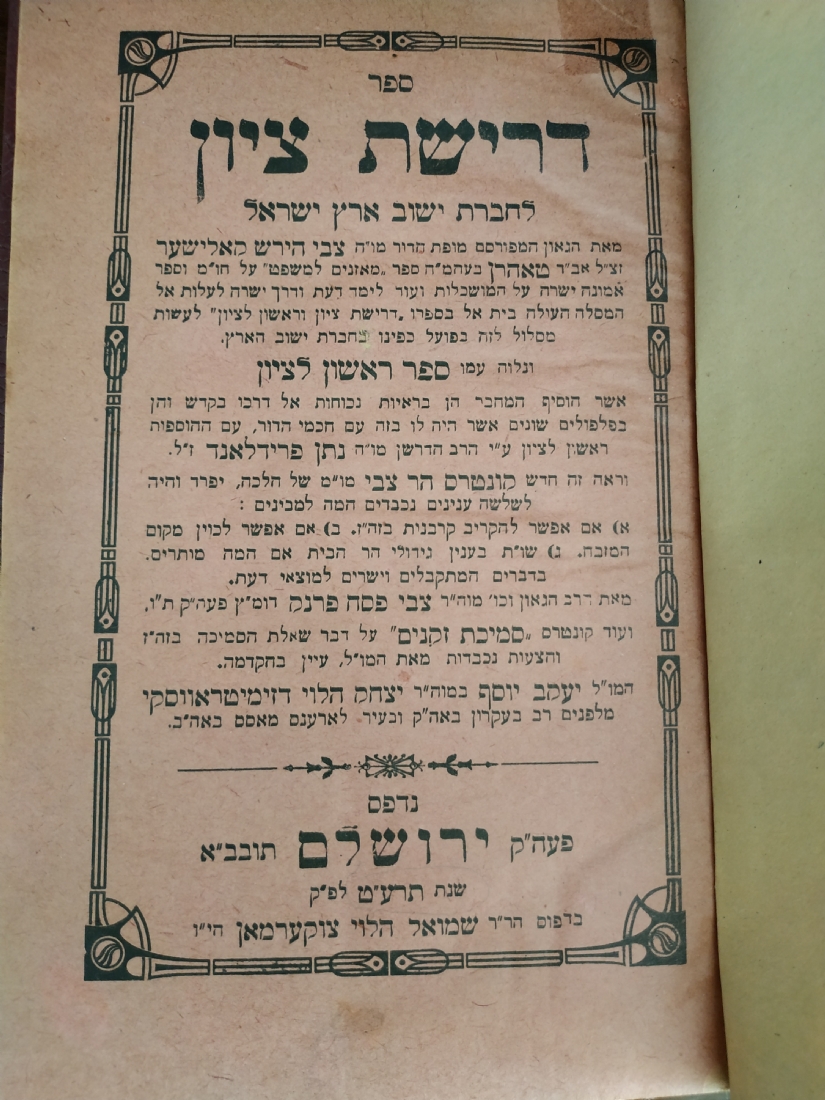 ספר
דרישת ציון
לחברת ישוב ארץ ישראל
מאת הגאון המפורסם מופת הדור מו״ה צבי הירש קאלישער
זצ״ל אב״ד טאהרן בעהמ״ח ספר „מאזנים למשפט" על חו״מ וספר
אמונה ישרה על המושכלות ועוד לימד דעת ודרך ישרה לעלות אל
המסלה העולה בית אל בספרו „דרישת ציון וראשון לציון" לעשות
מסלול לזה בפועל כפינו בחברת ישוב הארץ.
ונלוה עמו ספר ראשון לציון
אשר הוסיף המחבר הן בראיות נכוחות אל דרכו בקדש והן
בפלפולים שונים אשר היה לו בזה עם חכמי הדור, עם ההוספות
ראשון לציון ע״י הרב הדרשן מו״ה נתן פרידלאנד ז״ל.
וראה זה חדש קונטרס הר צבי מו״מ של הלכה, יפרד והיה
לשלשה ענינים נכבדים המה למבינים :
א) אם אפשר להקריב קרבנות בזה״ז. ב) אם אפשר לכוין מקום
המזבח. ג) שו״ת בענין גידולי הר הבית אם המה מותרים.
בדברים המתקבלים וישרים למוצאי דעת.
מאת הרב הגאון וכו׳ מוה״ר צבי פסח פרנק דומ״ץ פעה״ק ת״ו.
ועוד קונטרס „סמיכת זקנים" על דבר שאלת הסמיכה בזה״ז
והצעות נכבדות מאת המו״ל, עיין בהקדמה.
המו״ל יעקב יוסף במוה״ר יצחק הלוי דזימיטראווסקי
מלפנים רב בעקרון באה״ק ובעיר לארענס מאסס באה״ב.
נדפס
פעה״ק ירושלם תובב״א
שנת תרע״ט לפ״ק
בדפוס הר״ר שמואל הלוי צוקערמאן הי״ו